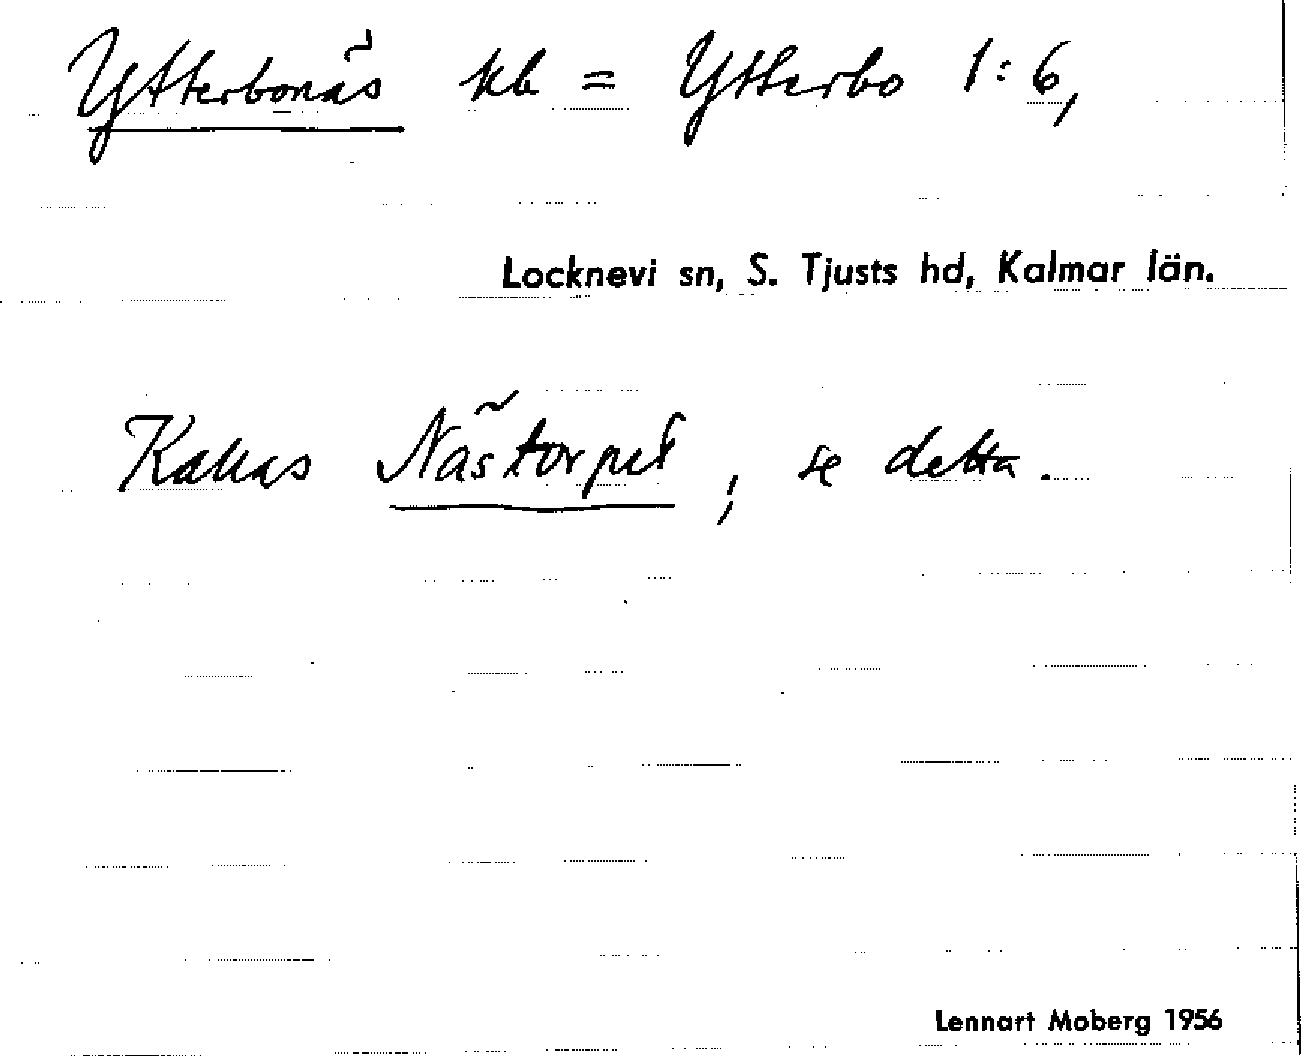 Ytterbonäs kb = Ytterbo 1:6,
Locknevi sn, S. Tjusts hd, Kalmar län.
Kallas Nästorpet, se detta.
Lennart Moberg 1956